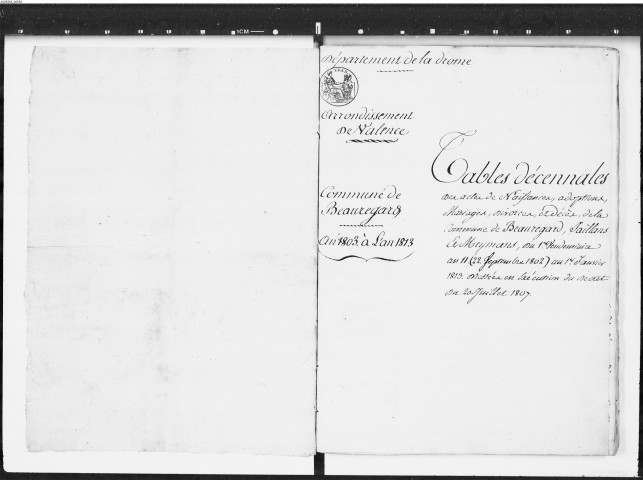 Département de la drome
Arrondissement
de Valence
Commune de
Beauregard
An 1803 à L'an 1813
Tables décennales
des actes de Naissances, adoptions,
Mariages, divorces, et décès, de la
Commune de Beauregard, Jaillans
et Meymans, du 1er Vendémiaire
an 11 (22 Septembre 1802) au 1er Janvier
1813. dressées en Exécution du décret
du 20 Juillet 1807.
1CM